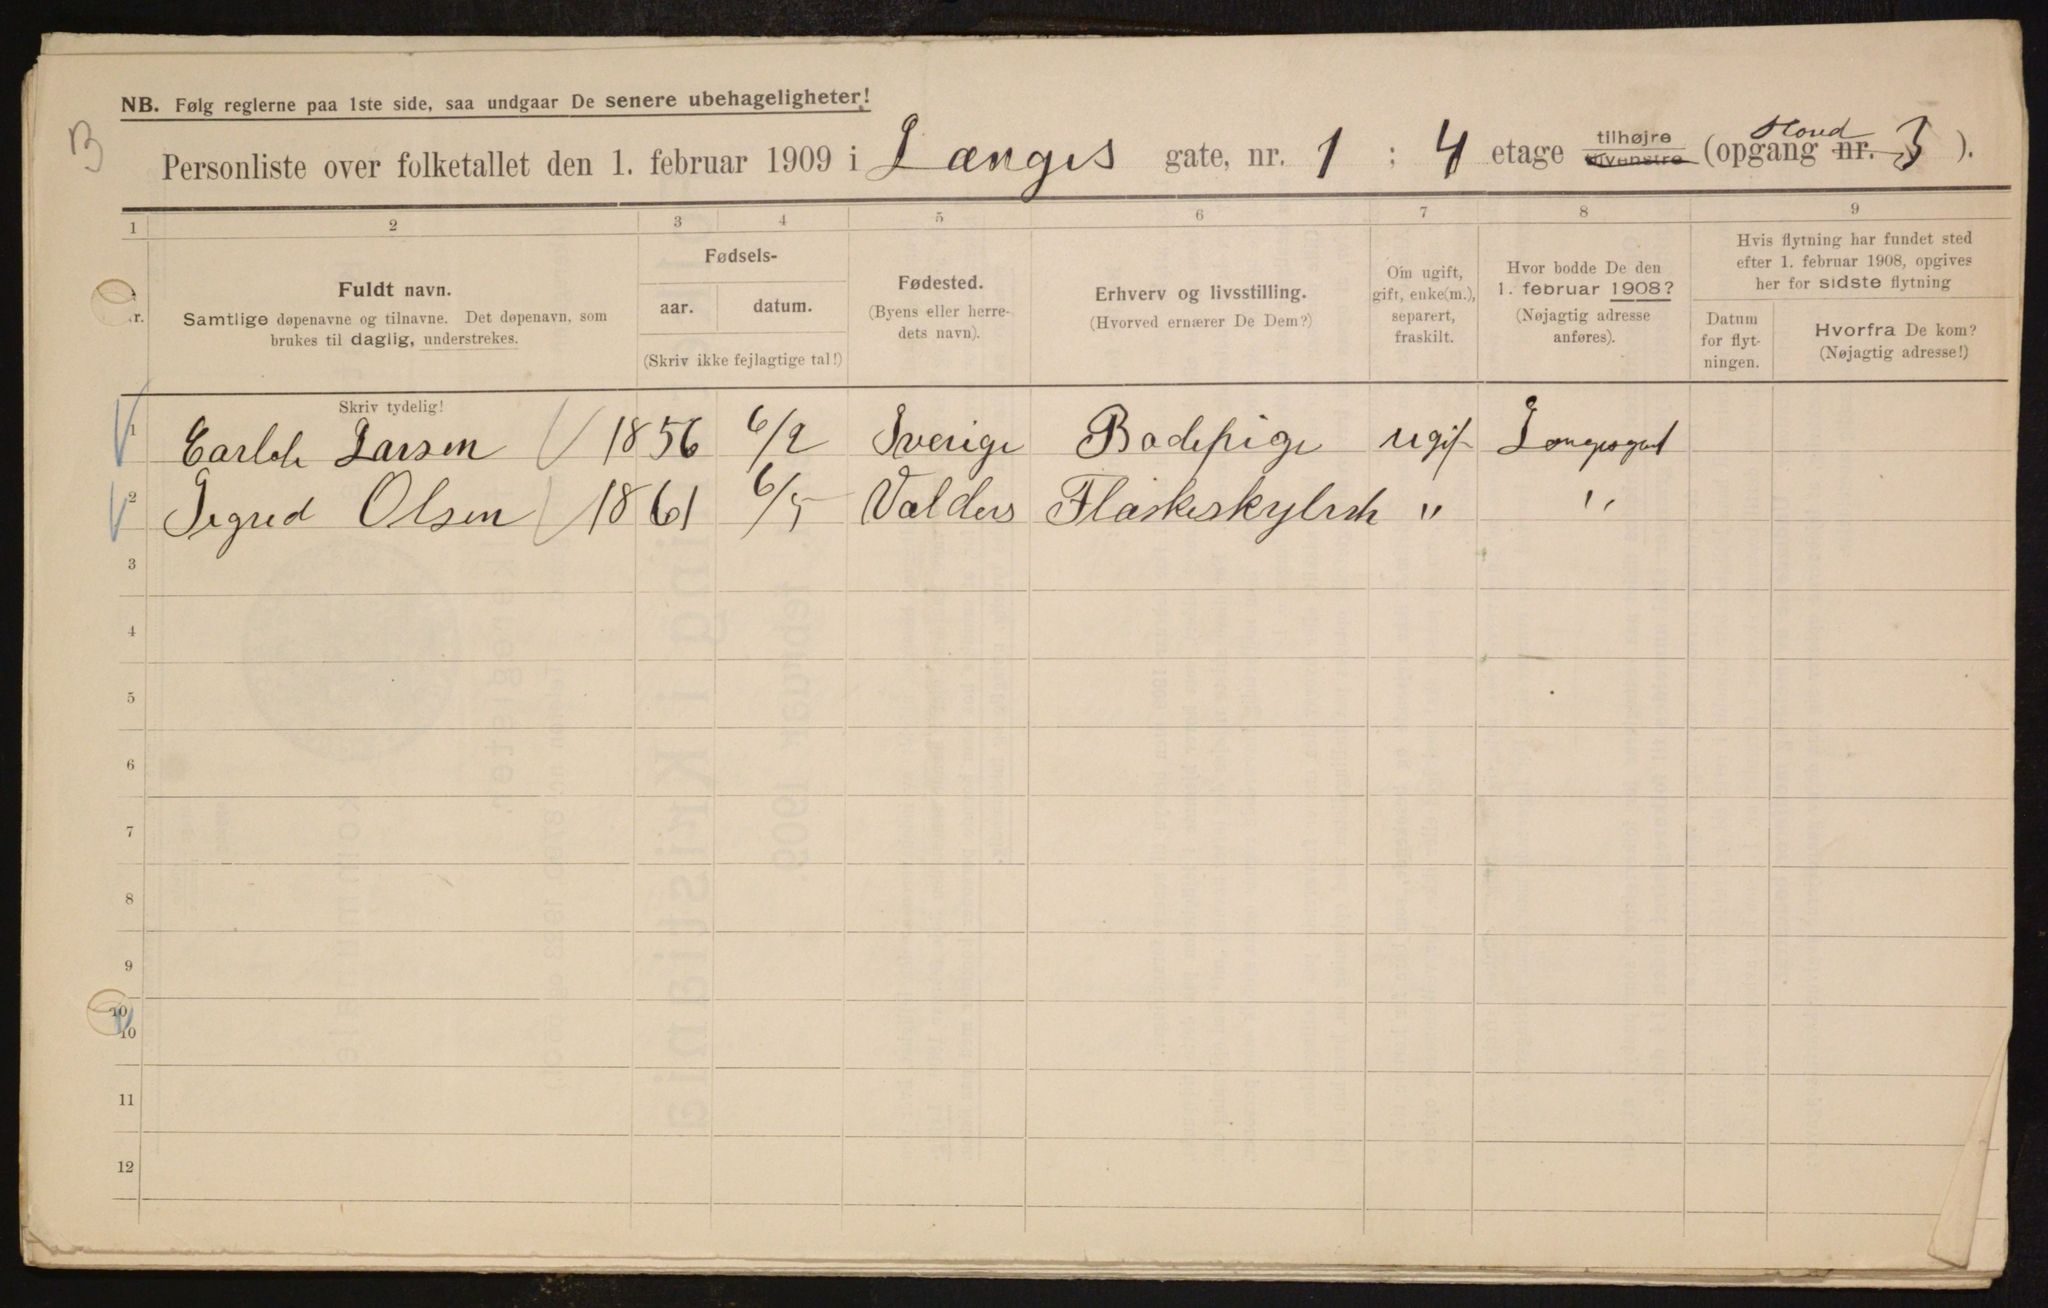 NB. Følg reglerne paa 1ste side, saa undgaar De senere ubehageligheter!
B
Personliste over folketallet den 1. februar 1909 i Længes gate, nr. 1 ; 4 etage tilhøjre tilvenstre (opgang nr. 3 ).
1 2 3 4 5 6 7 8 9
Nr.
Fuldt navn.
Samtlige døpenavne og tilnavne. Det døpenavn, som
brukes til daglig, understrekes.
Fødsels-
aar. datum.
(Skriv ikke fejlagtige tal!)
Fødested.
(Byens eller herre-
dets navn).
Erhverv og livsstilling.
(Hvorved ernærer De Dem?)
Om ugift,
gift, enke(m.),
separert,
fraskilt.
Hvor bodde De den
1. februar 1908?
(Nøjagtig adresse
anføres).
Hvis flytning har fundet sted
efter 1. februar 1908, opgives
her for sidste flytning
Datum
for flyt-
ningen.
Hvorfra De kom?
(Nøjagtig adresse!)
Skriv tydelig!
1 Larsen 1856 6/2 Sverige Badepige ugif
2 Sigred Olsen 1861 6/5 Valders Flaskeskylrsk " "
3
4
5
6
7
8
9
10
10
11
12